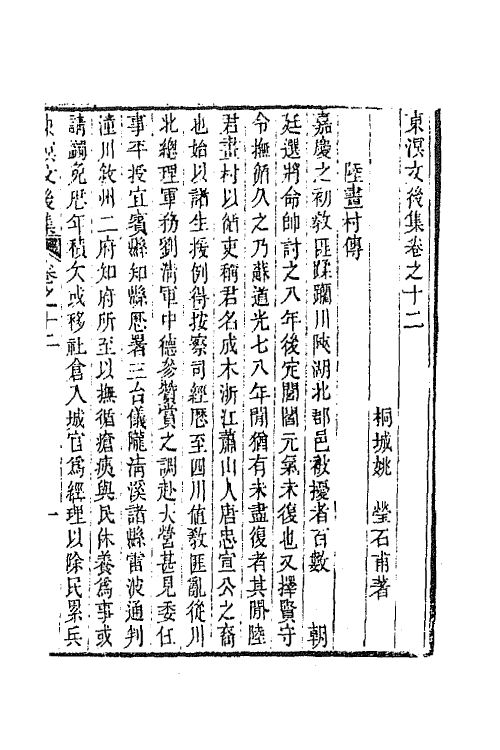 東溟文後集卷之十二
桐城姚　瑩石甫著
陸畫村傳
嘉慶之初敎匪蹂躪川陝湖北郡邑被擾者百數　朝
廷選將命帥討之八年後定閭閻元氣未復也又擇賢守
令撫循久之乃蘇道光七八年間猶有未盡復者其間陸
君畫村以循吏稱君名成木浙江蕭山人唐忠宣公之裔
也始以諸生援例得按察司經歷至四川値敎匪亂從川
北總理軍務劉淸軍中德參贊賞之調赴大營甚見委任
事平授宜賓縣知縣歷署三台儀隴淸溪諸縣雷波通判
潼川敘州二府知府所至以撫循瘡痍與民休養爲事或
請蠲免歷年積欠或移社倉入城官爲經理以除民累兵
東溟文後集　卷之十二　一